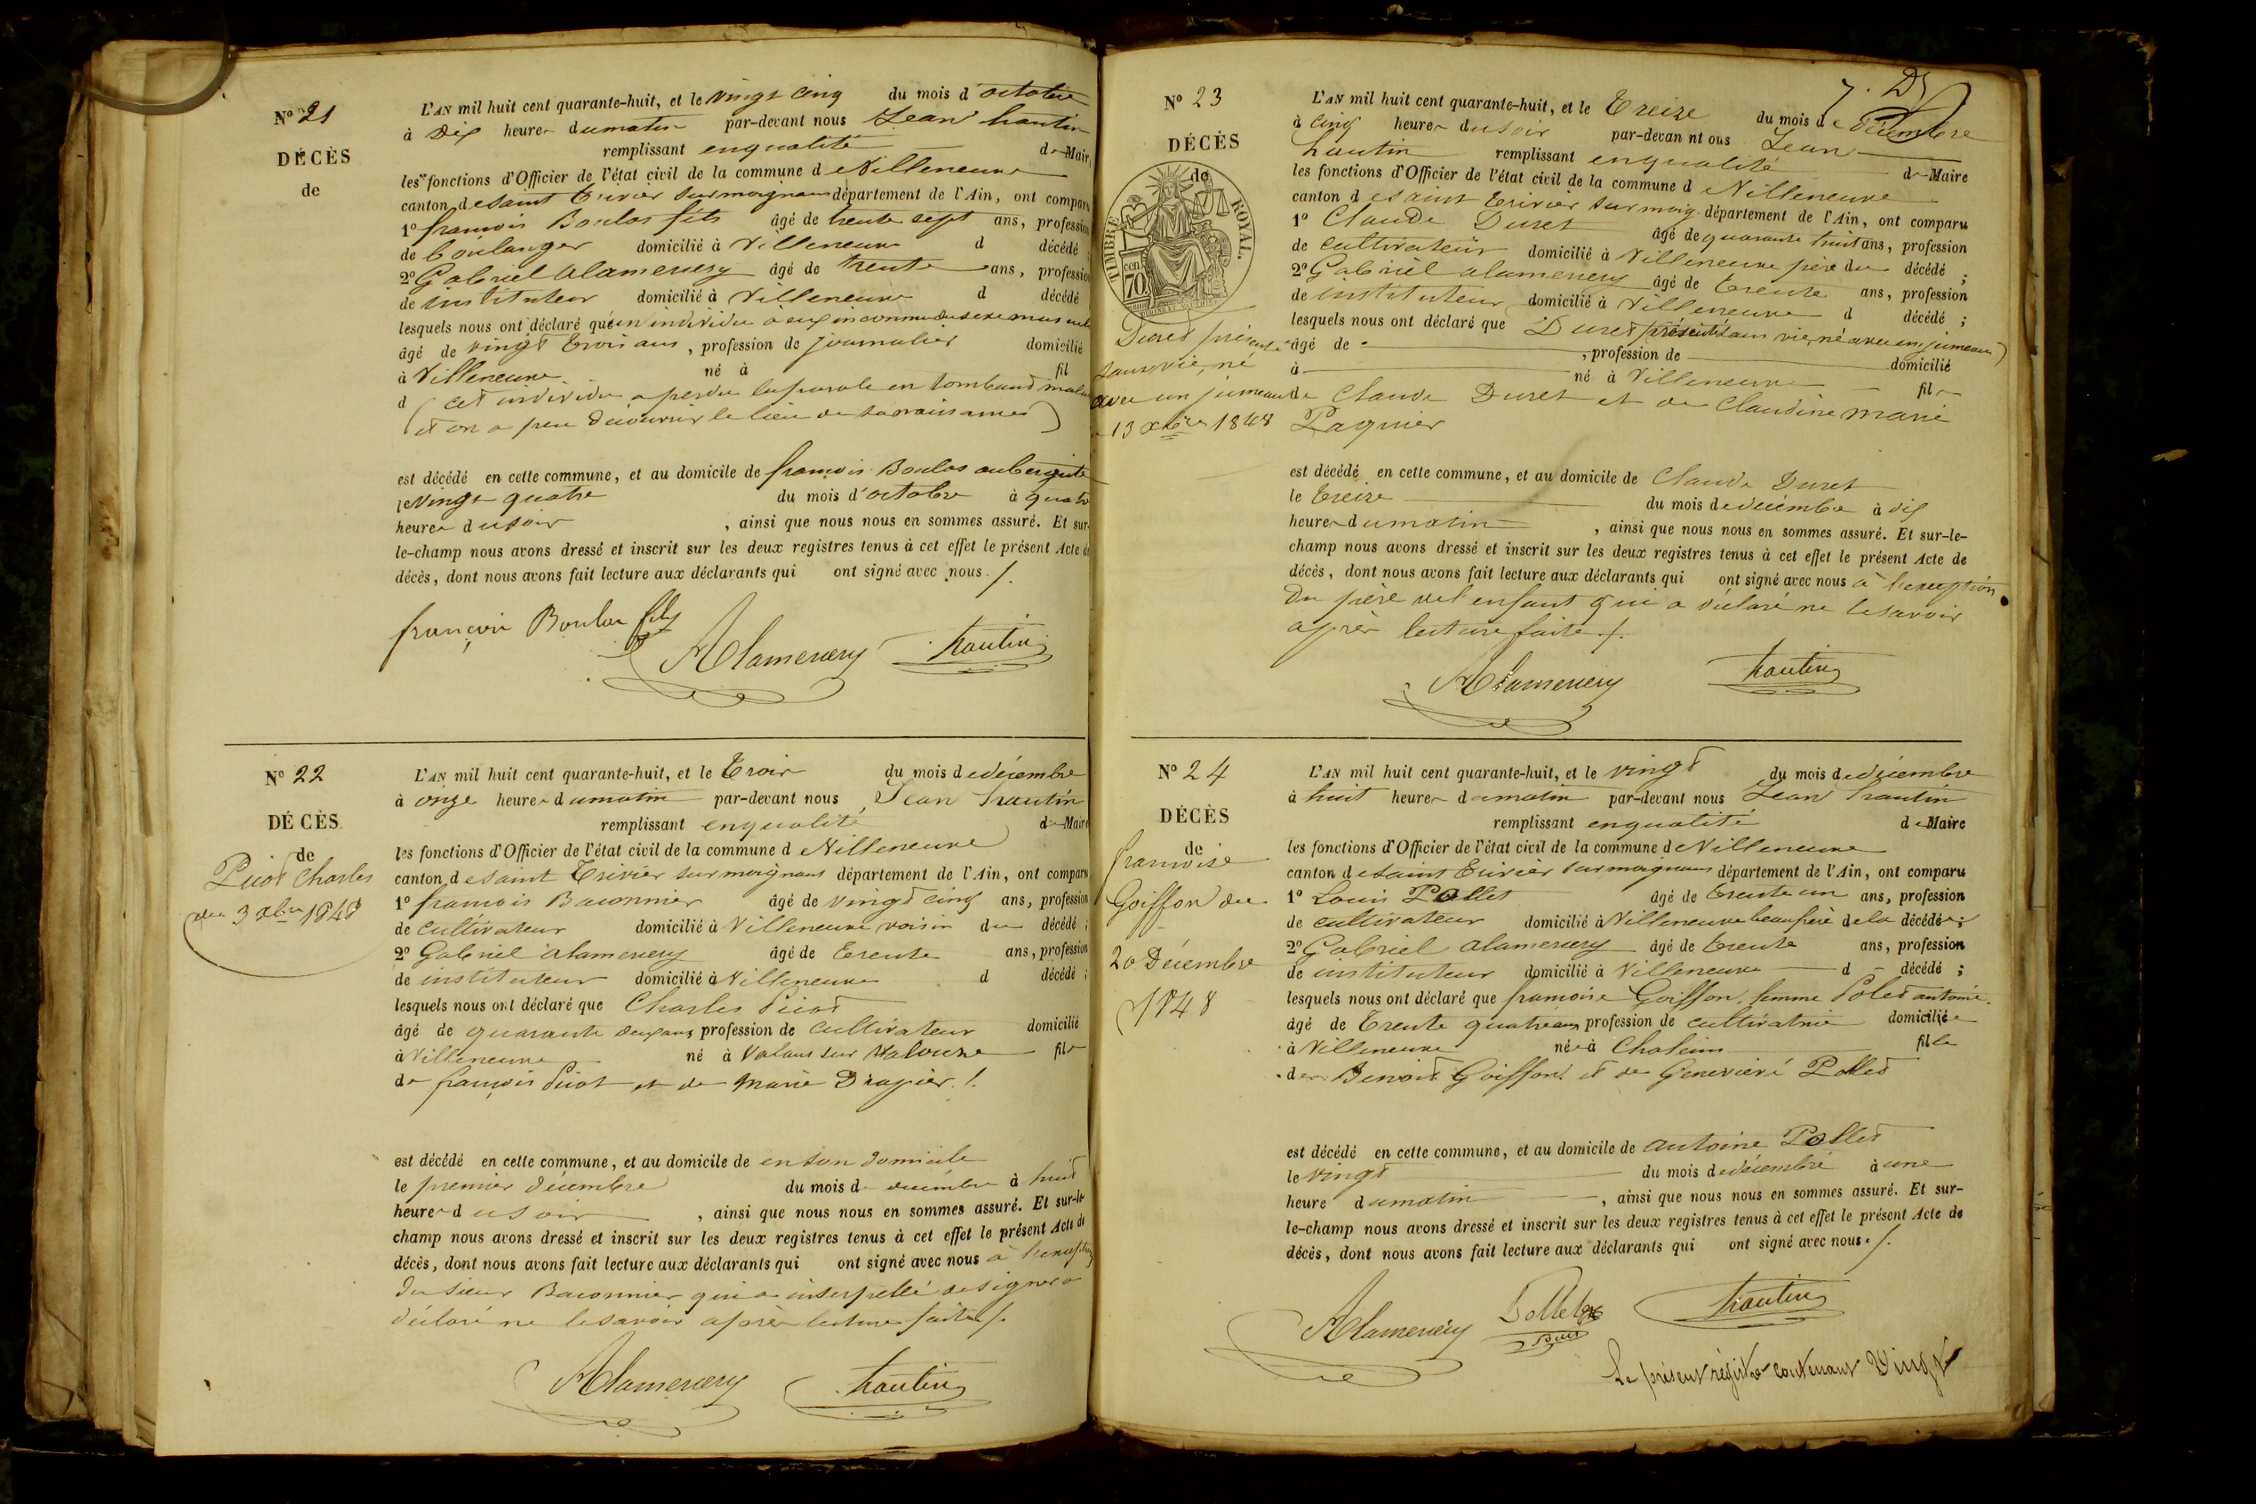 Nº 21
DÉCÈS
de
L'AN mil huit cent quarante-huit, et le vingt cinq du mois d'octobre
à Dix heures du matin par-devant nous Jean
remplissant en qualité de Maire
les fonctions d'Officier de l'état civil de la commune de Villeneuve
canton de saint Trivier sur moignans département de l'Ain, ont comparu
1º françois Boulas fils âgé de trente sept ans, profession
de boulanger domicilié à Villeneuve d décédé ;
2º Gabriel Alamercery âgé de trente ans, profession
de instituteur domicilié à Villeneuve d décédé
lesquels nous ont déclaré qu'un individu a eux inconnu du sexe masculin
âgé de vingt trois ans, profession de journalier domicilié
à Villeneuve né à fil
d (cet individu a perdu la parole en tombant malade
et on a peu découvrir le lieu de sa naissance)
est décédé en cette commune, et au domicile de françois Boulas aubergiste
le vingt quatre du mois d'octobre à quatre
heures du soir, ainsi que nous nous en sommes assuré. Et sur-
le-champ nous avons dressé et inscrit sur les deux registres tenus à cet effet le présent Acte de
décès, dont nous avons fait lecture aux déclarants qui ont signé avec nous ./.
françois Boulas fils Alamercery
Nº 22
DÉCÈS
de
Picot Charles
du 3 Xbre 1848
L'AN mil huit cent quarante-huit, et le Trois du mois de décembre
à onze heures du matin par-devant nous Jean
remplissant en qualité de Maire
les fonctions d'Officier de l'état civil de la commune de Villeneuve
canton de saint Trivier sur moignans département de l'Ain, ont comparu
1º françois Baconnier âgé de vingt cinq ans, profession
de cultivateur domicilié à Villeneuve voisin du décédé ;
2º Gabriel alamercery âgé de trente ans, profession
de instituteur domicilié à Villeneuve d décédé ;
lesquels nous ont déclaré que Charles Picot
âgé de quarante deux ans, profession de cultivateur domicilié
à Villeneuve né à fils
de françois Picot et de Marie Drapier ./.
est décédé en cette commune, et au domicile de en son domicile
le premier décembre du mois de décembre à huit
heures du soir, ainsi que nous nous en sommes assuré. Et sur-le-
champ nous avons dressé et inscrit sur les deux registres tenus à cet effet le présent Acte de
décès, dont nous avons fait lecture aux déclarants qui ont signé avec nous à l'exception
du sieur Baconnier qui a interpellé de signer a
déclaré ne le savoir après lecture faite ./.
Alamercery
Nº 23
DÉCÈS
de
TIMBRE ROYAL
70 cen
Duret présenté
sans vie, né
avec un jumeau
13 Xbre 1848
L'AN mil huit cent quarante-huit, et le Treize du mois de décembre
à cinq heures du soir par-devant nous Jean
remplissant en qualité de Maire
les fonctions d'Officier de l'état civil de la commune de Villeneuve
canton de saint Trivier sur moig département de l'Ain, ont comparu
1º Claude Duret âgé de quarante huit ans, profession
de cultivateur domicilié à Villeneuve père du décédé ;
2º Gabriel alamercery âgé de trente ans, profession
de instituteur domicilié à Villeneuve d décédé ;
lesquels nous ont déclaré que Duret (présenté sans vie, né avec un jumeau)
âgé de , profession de domicilié
à né à Villeneuve fils
de Claude Duret et de Claudine marie
Paquier
est décédé en cette commune, et au domicile de Claude Duret
le treize du mois de décembre à dix
heures du matin, ainsi que nous nous en sommes assuré. Et sur-le-
champ nous avons dressé et inscrit sur les deux registres tenus à cet effet le présent Acte de
décès, dont nous avons fait lecture aux déclarants qui ont signé avec nous à l'exception
du père de l'enfant qui a déclaré ne le savoir
après lecture faite ./.
Alamercery
Nº 24
DÉCÈS
de
françoise
Goiffon du
20 Décembre
1848
L'AN mil huit cent quarante-huit, et le vingt du mois de décembre
à huit heures du matin par-devant nous Jean
remplissant en qualité de Maire
les fonctions d'Officier de l'état civil de la commune de Villeneuve
canton de saint Trivier sur moignans département de l'Ain, ont comparu
1º Louis Pollet âgé de trente un ans, profession
de cultivateur domicilié à Villeneuve beau frère de la décédée ;
2º Gabriel alamercery âgé de trente ans, profession
de instituteur domicilié à Villeneuve d décédé ;
lesquels nous ont déclaré que françoise Goiffon, femme Polet antoine
âgé de trente quatre ans profession de cultivatrice domiciliée
à Villeneuve née à Chaleins fille
de Benoit Goiffon et de Geneviève Pollet
est décédé en cette commune, et au domicile de antoine Pollet
le vingt du mois de décembre à une
heure du matin, ainsi que nous nous en sommes assuré. Et sur-
le-champ nous avons dressé et inscrit sur les deux registres tenus à cet effet le présent Acte de
décès, dont nous avons fait lecture aux déclarants qui ont signé avec nous ./.
Alamercery Pollet
Le présent registre contenant Vingt